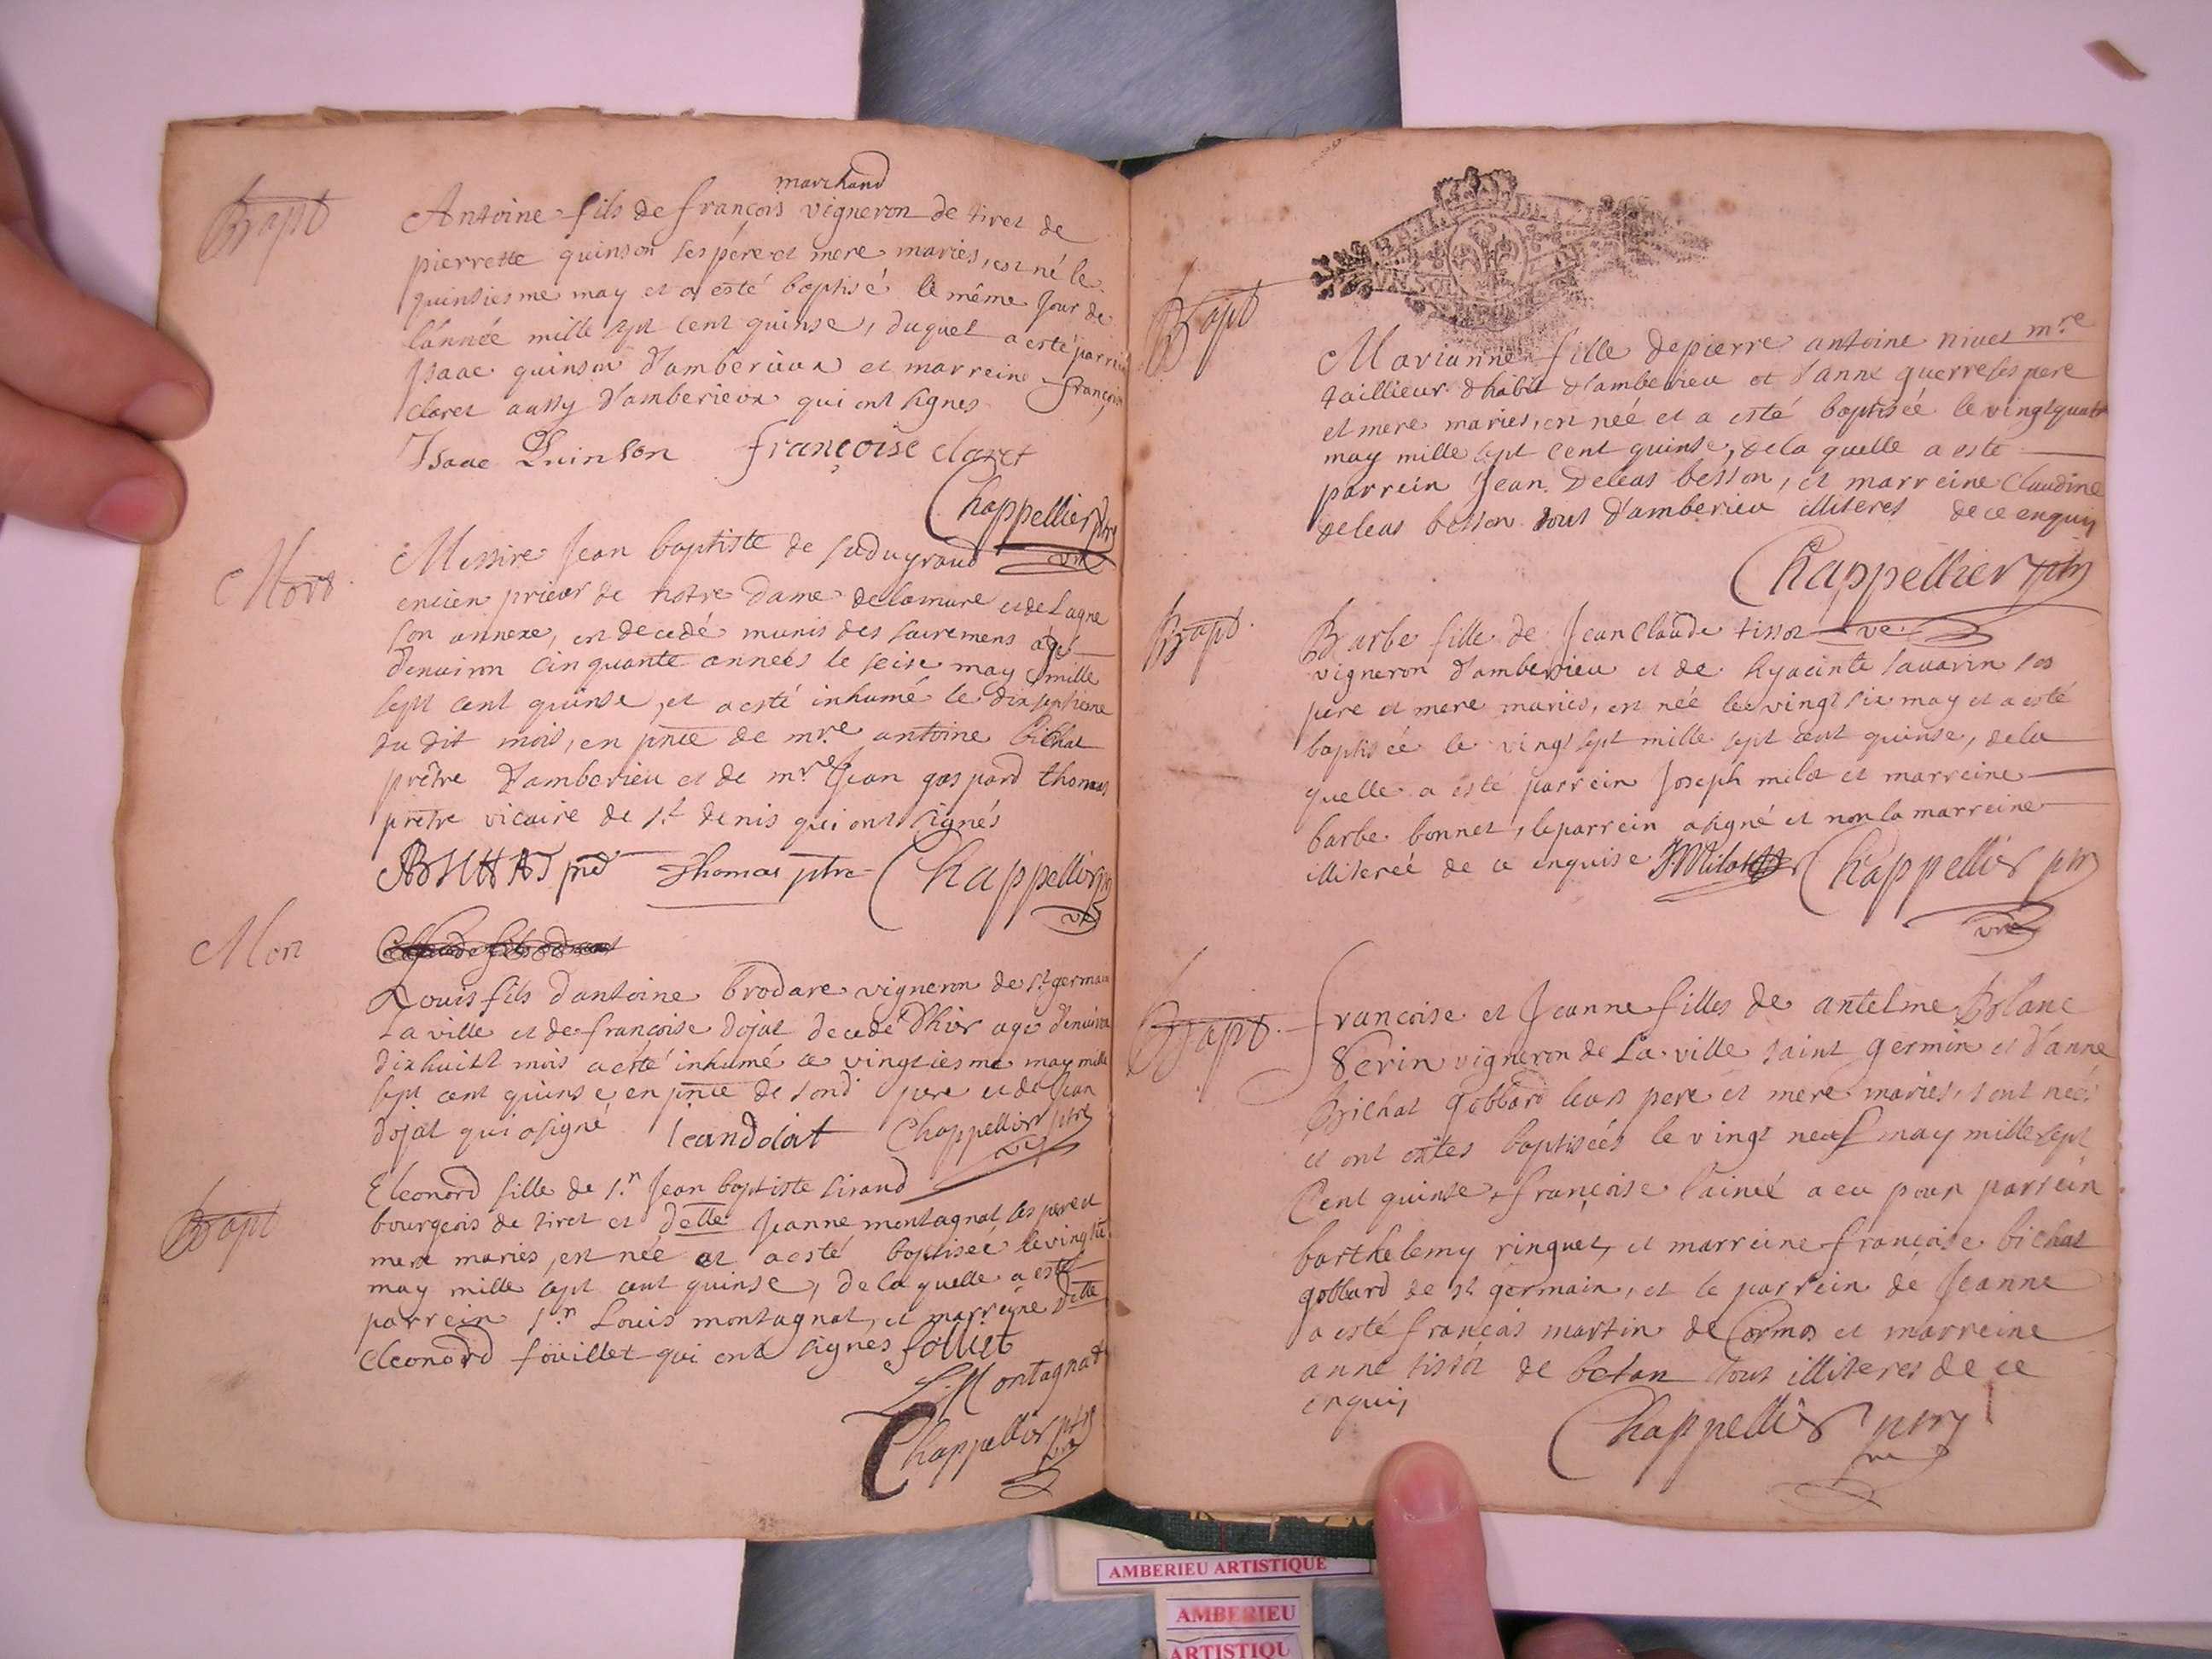 Bapt
marchand
Antoine fils de françois vigneron de tiret de
pierrette quinson ses père et mere mariés, est né le
quinsiesme may et a esté baptisé le même jour de
l'année mille sept cent quinse, duquel a esté parrein
Isaac quinson d'amberieux et marreine françoise
claret aussy d'amberieux qui ont signes
Isaac Quinson françoise claret
Chappellier ptre
vre
Mort
Messire Jean baptiste de
encien prieur de notre dame delamure et de Lagne
son annexe, est decedé munis des sacremens agé
d'environ cinquante années le seise may mille
sept cent quinse, et a esté inhumé le dixseptieme
du dit mois, en pnce de mre antoine bichat
prêtre d'amberieu et de mre Jean gaspard thomas
prêtre vicaire de st denis qui ont signés
ABICHAT Thomas ptre Chappellier
Mort
Louis fils d'antoine brodare vigneron de st germain
La ville et de françoise dojat decedé d'hier agé d'environ
dixhuict mois a esté inhumé ce vingtiesme may mille
sept cent quinse en pnce de sond pere et de Jean
dojat qui a signé Jean dolat Chappellier ptre
vre
Bapt
Eleonord fille de sr Jean baptiste sirand
bourgeois de tiret et delle Jeanne montagnat ses pere et
mere mariés, est née et a esté baptiseé le
may mille sept cent quinse, de laquelle a esté
parrein sr Louis montagnat, et marreine delle
eleonord foüillet qui ont signés follüet
L. Montagnat
Chappellier ptre
Bapt
Marianne fille de pierre antoine nivet mre
taillieur d'habit d'amberieu et d'anne guerre ses pere
et mere mariés, est neé et a esté baptisée le vingtquatre
may mille sept cent quinse, de la quelle a esté
parrein Jean deleas besson, et marreine Claudine
deleas besson tous d'amberieu illiteres de ce enquis
Chappellier ptre
vre
Bapt
Barbe fille de Jean Claude tissot
vigneron d'amberieu et de hyacinte savarin ses
pere et mere mariés, est née le vingt six may et a esté
baptisée le vingt sept mille sept cent quinse, de la
quelle a esté parrein Joseph milot et marreine
barbe bonnet, le parrein a signé et non la marreine
illitereé de ce enquise J Milot Chappellier ptre
vre
Bapt
francoise et Jeanne filles de antelme Blanc
Perin vigneron de La ville saint germin et d'anne
Brichat gobbard leurs pere et mere mariés, sont neés
et ont estés baptisées le vingt neuf may mille sept
Cent quinse, françoise l'aineé a eu pour parrein
barthelemy ringuet, et marreine françoise bichat
gobbard de st germain, et le parrein de Jeanne
a esté françois martin de Cormos et marreine
anne tissot de betan tous illiteres de ce
enquis
Chappellier ptre
vre
AMBERIEU ARTISTIQUE
AMBERIEU
ARTISTIQU